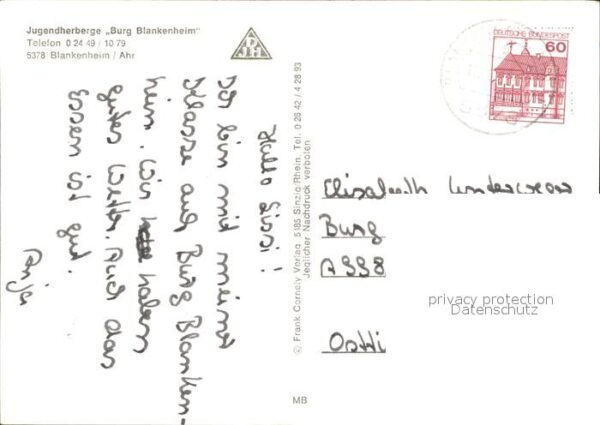 Jugendherberge „Burg Blankenheim"
Telefon 0 24 49 / 10 79
5378 Blankenheim / Ahr
DJH
Hallo Sissi!
Ich bin mit meiner
Klasse auf Burg Blanken-
heim. Wir haben
gutes Wetter. Auch das
Essen ist gut.
Anja
© Frank Cornely Verlag, 5485 Sinzig/Rhein, Tel. 0 26 42 / 4 28 93
Jeglicher Nachdruck verboten
DEUTSCHE BUNDESPOST
60
Elisabeth
Burg
privacy protection
Datenschutz
MB